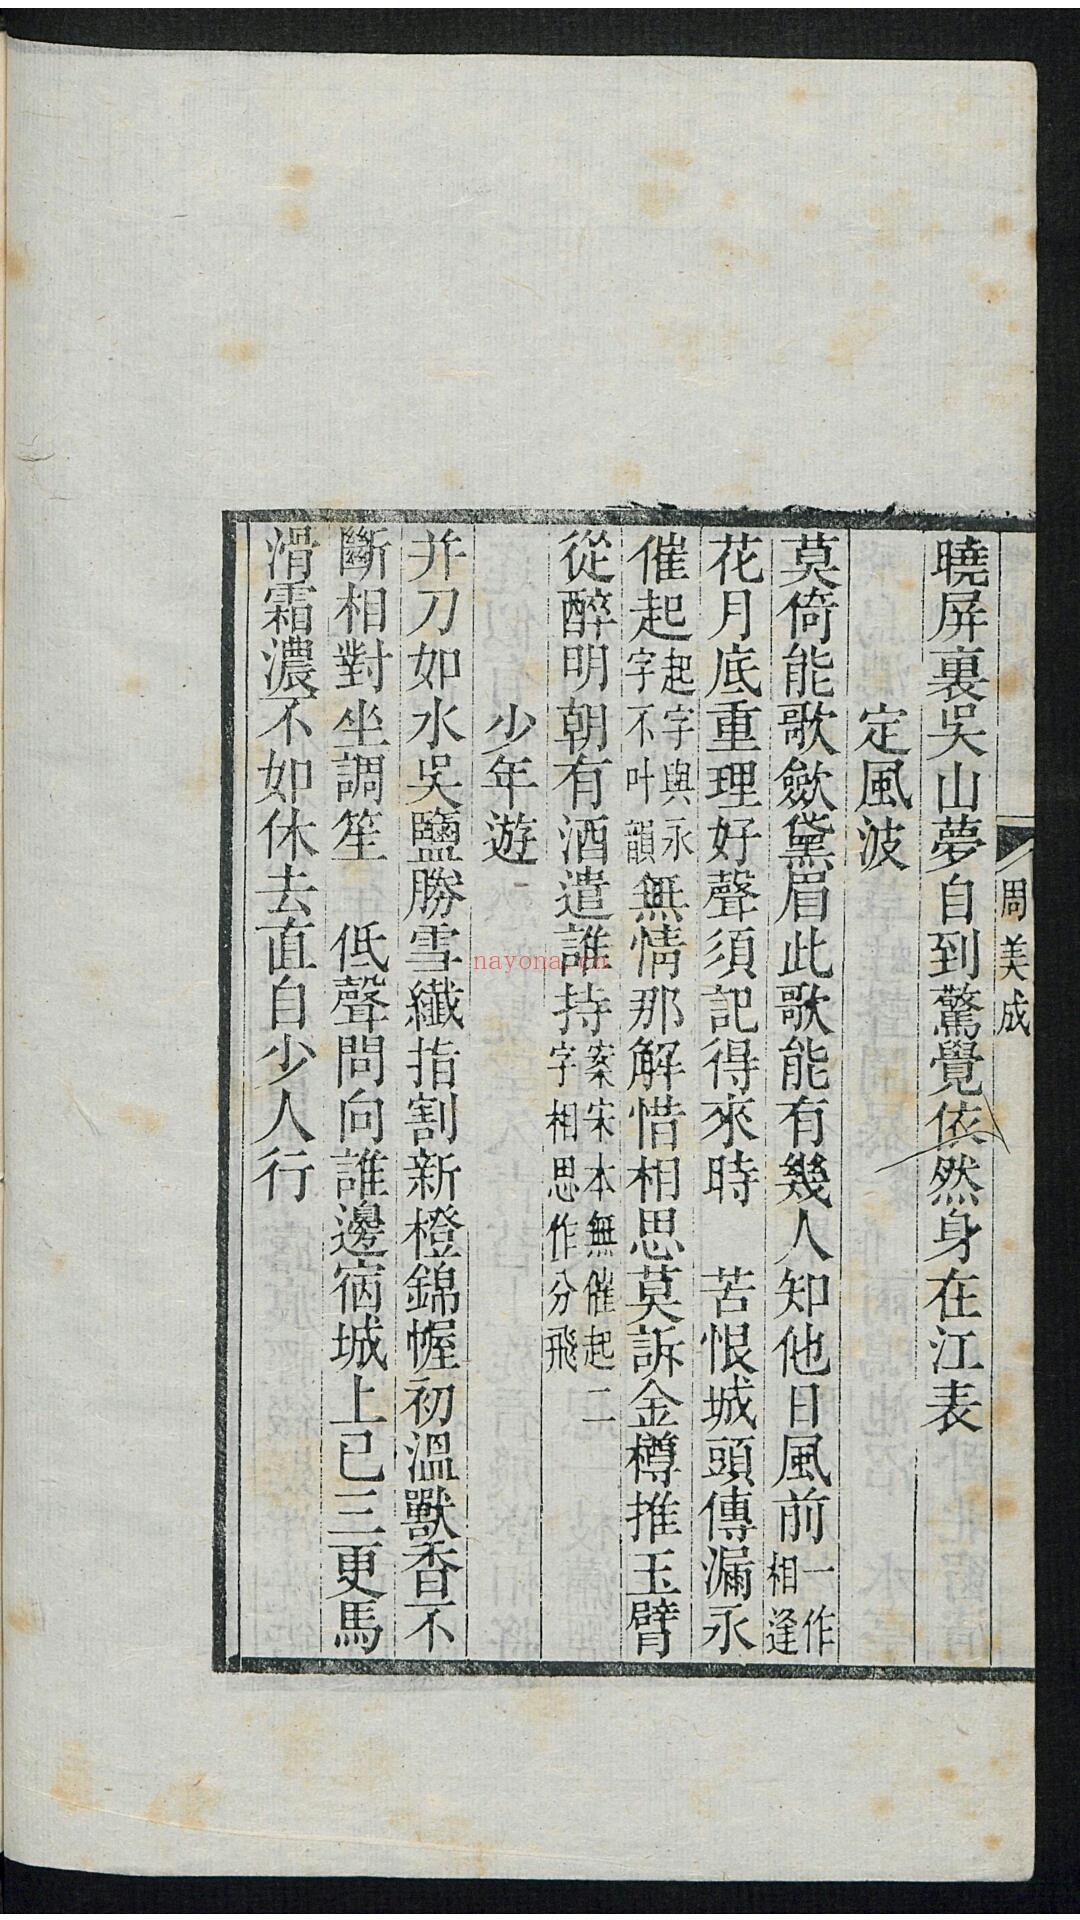 周美成
曉屏裏吳山夢自到驚覺依然身在江表
定風波
莫倚能歌斂黛眉此歌能有幾人知他日風前一作相逢
花月底重理好聲須記得來時　苦恨城頭傳漏永
催起起字與永字不叶韻無情那解惜相思莫訴金樽推玉臂
從醉明朝有酒遣誰持案宋本無催起二字相思作分飛
少年遊
并刀如水吳鹽勝雪纖指割新橙錦幄初溫獸香不
斷相對坐調笙　低聲問向誰邊宿城上已三更馬
滑霜濃不如休去直自少人行
nayona.cn